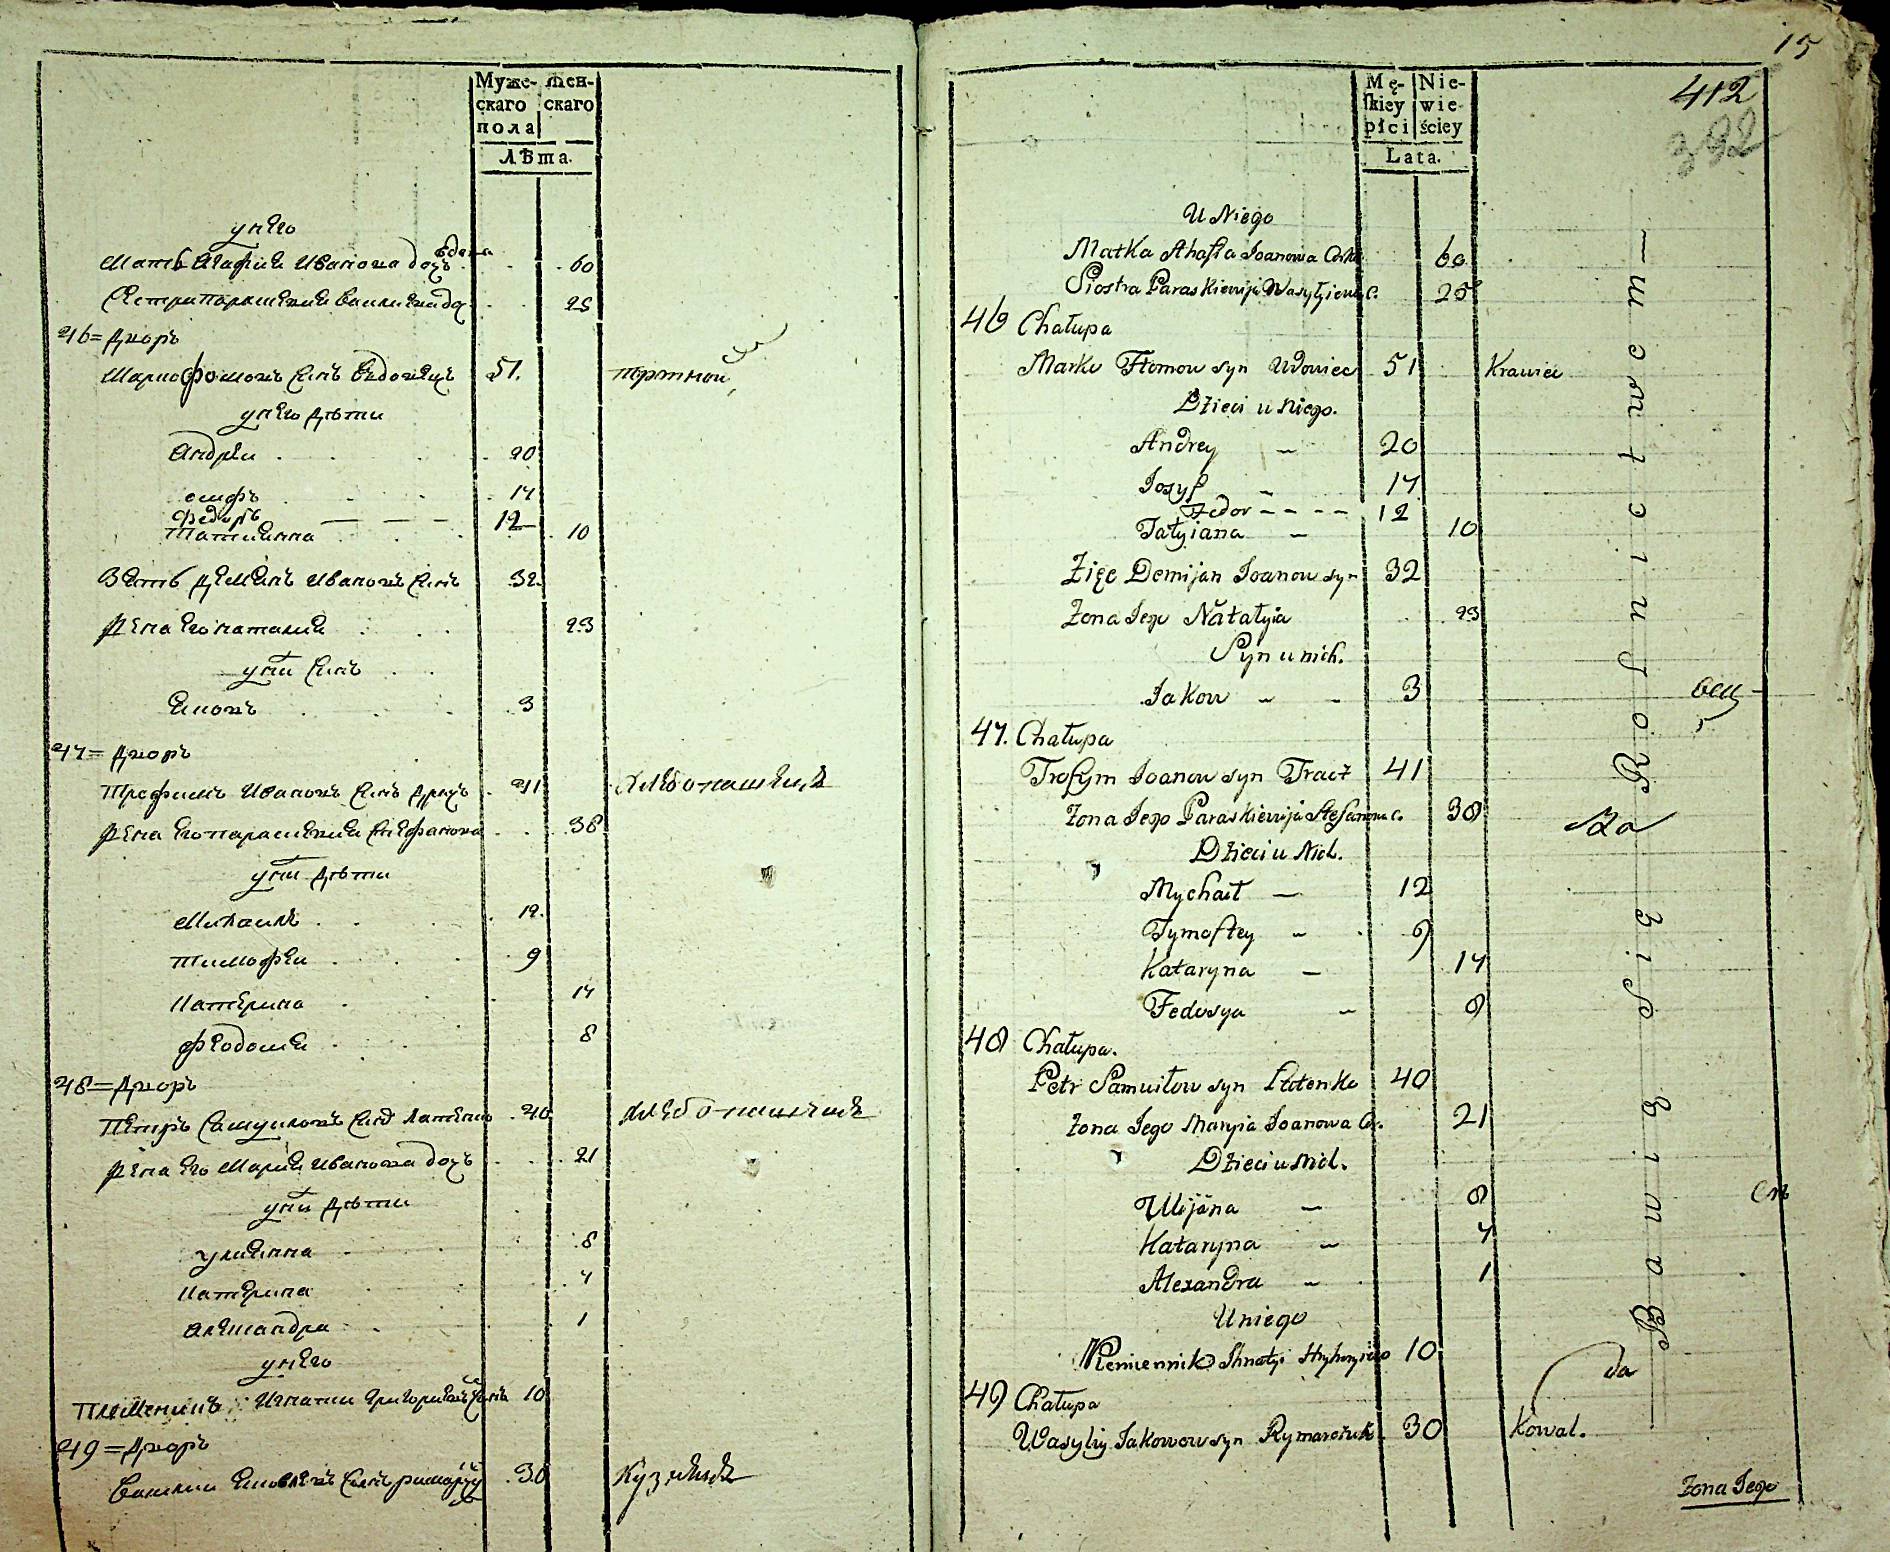 Муже-
скаго
пола
Жен-
скаго
Лѣта.
у него
Мать Агафия Иванова дочь вдова 60
Сестра Параскевия Василиева до. 25
46 = Дворъ
Марко Фомовъ сынъ вдовецъ 51. портной
у него дѣти
Андреи 20
осифъ 17
Федоръ — — — 12
Татиянна 10
Зять Демиянъ Ивановъ сынъ 32
Жена его Наталия 23
у них сынъ
Яковъ 3
47 = Дворъ
Трофимъ Ивановъ сынъ 41 хлебопашецъ
Жена его Параскевия Стефанова 38
у них дѣти
Михаилъ 12
Тимофеи 9
Катерина 14
Феодосия 8
48 = Дворъ
Петръ Самуиловъ сынъ 40 хлебопашецъ
Жена его Мария Иванова дочь 21
у них дѣти
Улиянна 8
Катерина 4
Александра 1
у него
племенникъ Игнатии Григориевъ сынъ 10
49 = Дворъ
Василии Яковлевъ сынъ 30 кузнецъ
15
412
392
Mę-
skiey
płci
Nie-
wie
ściey
Lata.
U Niego
Matka Ahafia Joanowa Corka 60
Siostra Paraskiewija Wasylijewa C. 25
46 Chałupa
Marko Ftomow syn Wdowiec 51 Krawiec
Dzieci u Niego.
Andrey 20
Iosyf 17
Fedor - - - - 12
Tatyjana 10
Zięc Demijan Joanow syn 32
Zona Iego Natalyia 23
Syn u nich.
Jakow 3
47. Chałupa
Trofym Joanow syn Tracz 41
Zona Iego Paraskiewija Stefanowa c. 38
Dzieci u Nich.
Mychaił — 12
Tymoftey 9
Kataryna — 14
Fedosya — 8
48 Chałupa.
Petr Samuiłow syn 40
Zona Iego Maryia Joanowa Cor. 21
Dzieci u Nich.
Ulijana — 8
Kataryna 4
Alexandra 1
U niego
Plemiennik Ihnatyi Hryhoryiew 10
49 Chałupa
Wasyliy Jakowow syn Rymarczuk 30 Kowal.
Zona Iego